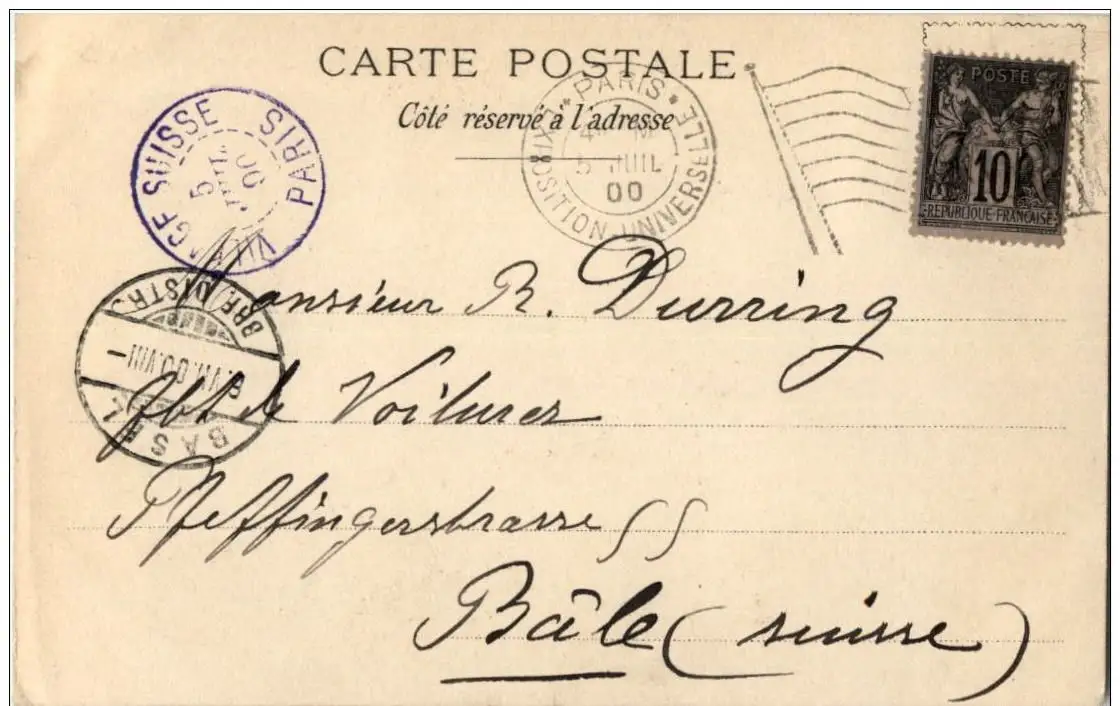 CARTE POSTALE
Côté réservé à l'adresse
VILLAGE SUISSE PARIS
5 JUIL 00
PARIS
EXPOSITION UNIVERSELLE
5 JUIL
00
POSTE
10
REPUBLIQUE FRANÇAISE
BRF. DISTR.
VII.00.VIII
BASEL
Monsieur R. Durring
de Voitures
Pfeffingerstrasse 55
Bâle (suisse)